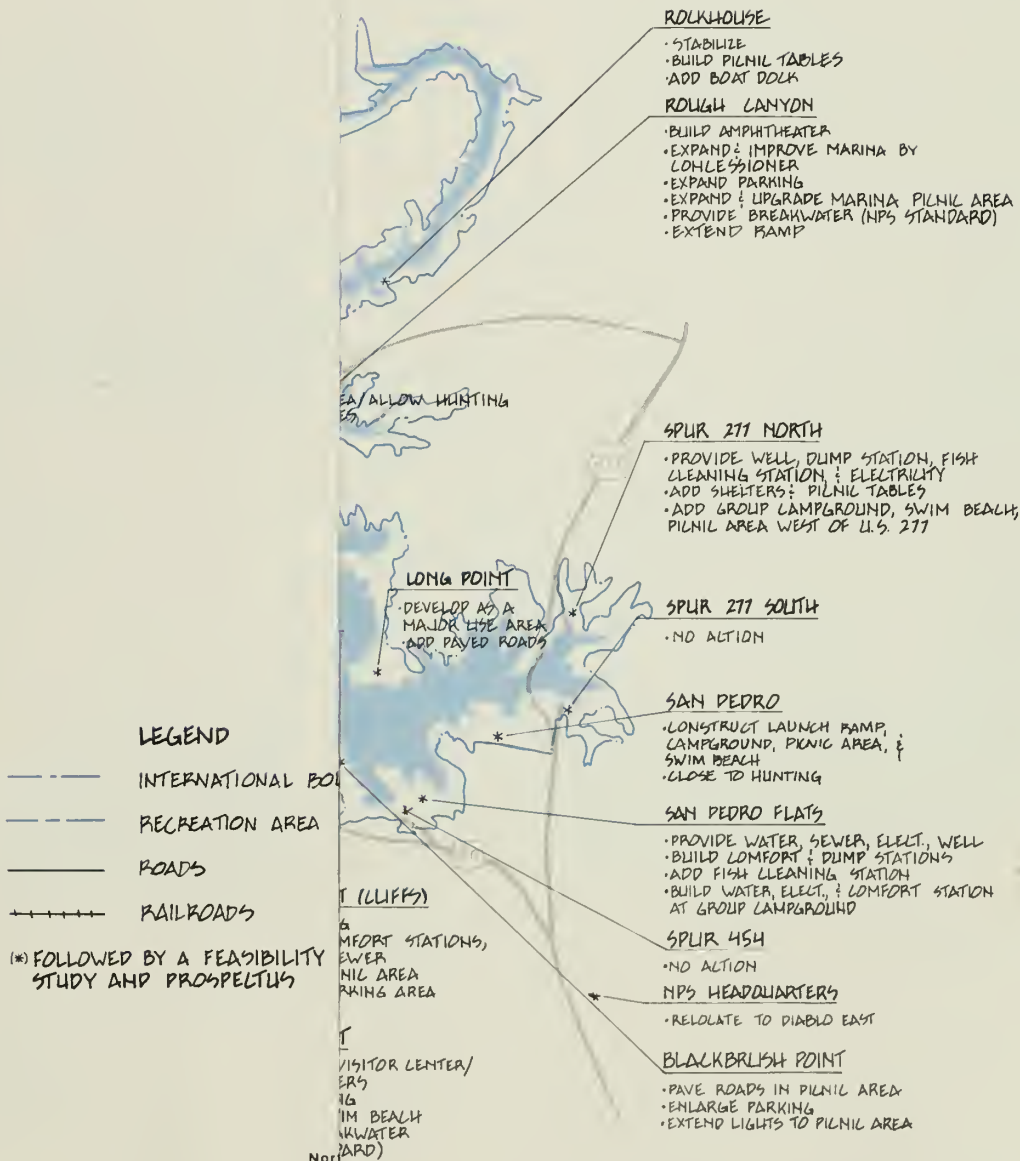 ROCKHOUSE
· STABILIZE
· BUILD PICNIC TABLES
· ADD BOAT DOCK
ROUGH CANYON
· BUILD AMPHITHEATER
· EXPAND & IMPROVE MARINA BY
CONCESSIONER
· EXPAND PARKING
· EXPAND & UPGRADE MARINA PICNIC AREA
· PROVIDE BREAKWATER (NPS STANDARD)
· EXTEND RAMP
EA/ALLOW HUNTING
ES
SPUR 277 NORTH
· PROVIDE WELL, DUMP STATION, FISH
CLEANING STATION, & ELECTRICITY
· ADD SHELTERS & PICNIC TABLES
· ADD GROUP CAMPGROUND, SWIM BEACH,
PICNIC AREA WEST OF U.S. 277
LONG POINT
· DEVELOP AS A
MAJOR USE AREA
· ADD PAVED ROADS
SPUR 277 SOUTH
· NO ACTION
SAN PEDRO
· CONSTRUCT LAUNCH RAMP,
CAMPGROUND, PICNIC AREA, &
SWIM BEACH
· CLOSE TO HUNTING
SAN PEDRO FLATS
· PROVIDE WATER, SEWER, ELECT., WELL
· BUILD COMFORT & DUMP STATIONS
· ADD FISH CLEANING STATION
· BUILD WATER, ELECT., & COMFORT STATION
AT GROUP CAMPGROUND
SPUR 454
· NO ACTION
NPS HEADQUARTERS
· RELOCATE TO DIABLO EAST
BLACKBRUSH POINT
· PAVE ROADS IN PICNIC AREA
· ENLARGE PARKING
· EXTEND LIGHTS TO PICNIC AREA
LEGEND
INTERNATIONAL BOU
RECREATION AREA
ROADS
RAILROADS
(*) FOLLOWED BY A FEASIBILITY
STUDY AND PROSPECTUS
T (CLIFFS)
G
MFORT STATIONS,
EWER
NIC AREA
RKING AREA
T
VISITOR CENTER/
ERS
NG
IM BEACH
AKWATER
DARD)
Nor